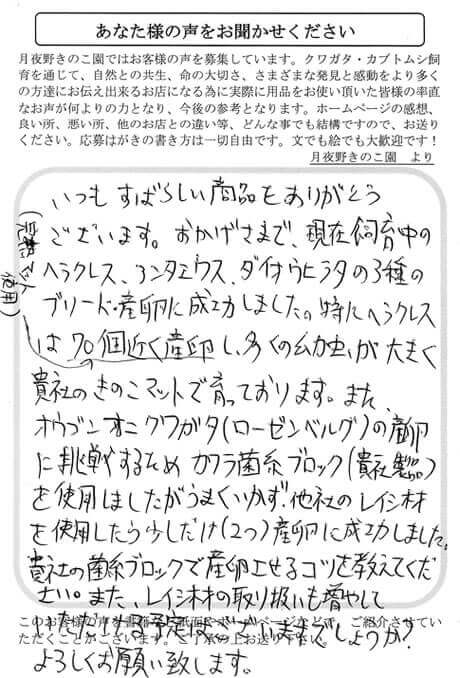 あなた様の声をお聞かせください
月夜野きのこ園ではお客様の声を募集しています。クワガタ・カブトムシ飼
育を通じて、自然との共生、命の大切さ、さまざまな発見と感動をより多く
の方達にお伝え出来るお店になる為に実際に用品をお使い頂いた皆様の率直
なお声が何よりの力となり、今後の参考となります。ホームページの感想、
良い所、悪い所、他のお店との違い等、どんな事でも結構ですので、お送り
ください。応募はがきの書き方は一切自由です。文でも絵でも大歓迎です！
月夜野きのこ園 より
いつもすばらしい商品をありがとう
ございます。おかげさまで、現在飼育中の
ヘラクレス、アンタエウス、ダイオウヒラタの3種の
ブリード・産卵に成功しました。特にヘラクレス
は70個近く産卵し、多くの幼虫が大きく
(完熟マット
使用)
貴社のきのこマットで育っております。また、
オウゴンオニクワガタ(ローゼンベルグ)の産卵
に挑戦するためカワラ菌糸ブロック(貴社製品)
を使用しましたがうまくいかず、他社のレイシ材
を使用したら少しだけ(2つ)産卵に成功しました。
貴社の菌糸ブロックで産卵させるコツを教えてくだ
さい。また、レイシ材の取り扱いも増やして
いただける予定はございますでしょうか?
このお客様の声を書籍、紙面やホームページなどで、ご紹介させてい
ただくことがございます。ご了承の上お送り下さい。
よろしくお願い致します。